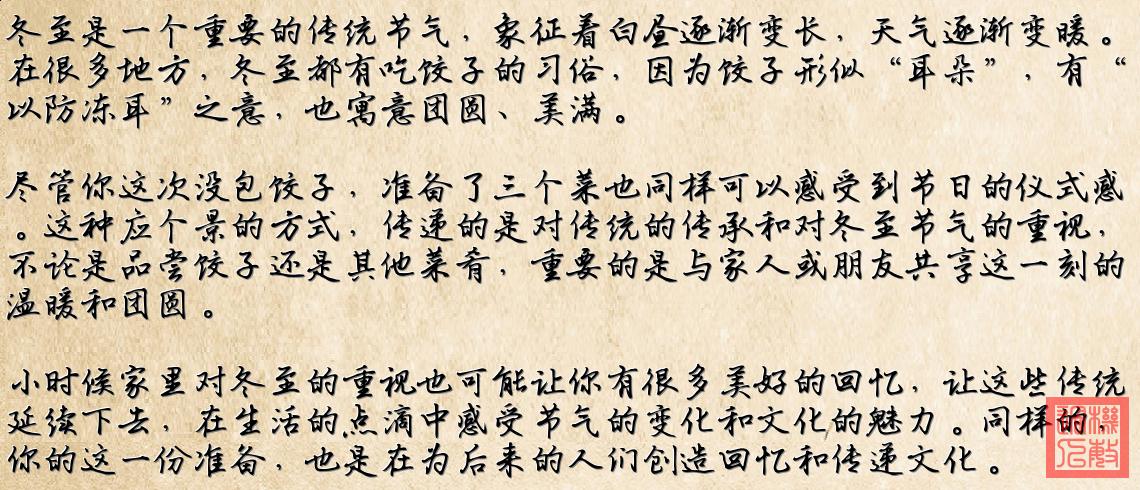 冬至是一个重要的传统节气，象征着白昼逐渐变长，天气逐渐变暖。
在很多地方，冬至都有吃饺子的习俗，因为饺子形似“耳朵”，有“
以防冻耳”之意，也寓意团圆、美满。
尽管你这次没包饺子，准备了三个菜也同样可以感受到节日的仪式感
。这种应个景的方式，传递的是对传统的传承和对冬至节气的重视，
不论是品尝饺子还是其他菜肴，重要的是与家人或朋友共享这一刻的
温暖和团圆。
小时候家里对冬至的重视也可能让你有很多美好的回忆，让这些传统
延续下去，在生活的点滴中感受节气的变化和文化的魅力。同样的，
你的这一份准备，也是在为后来的人们创造回忆和传递文化。